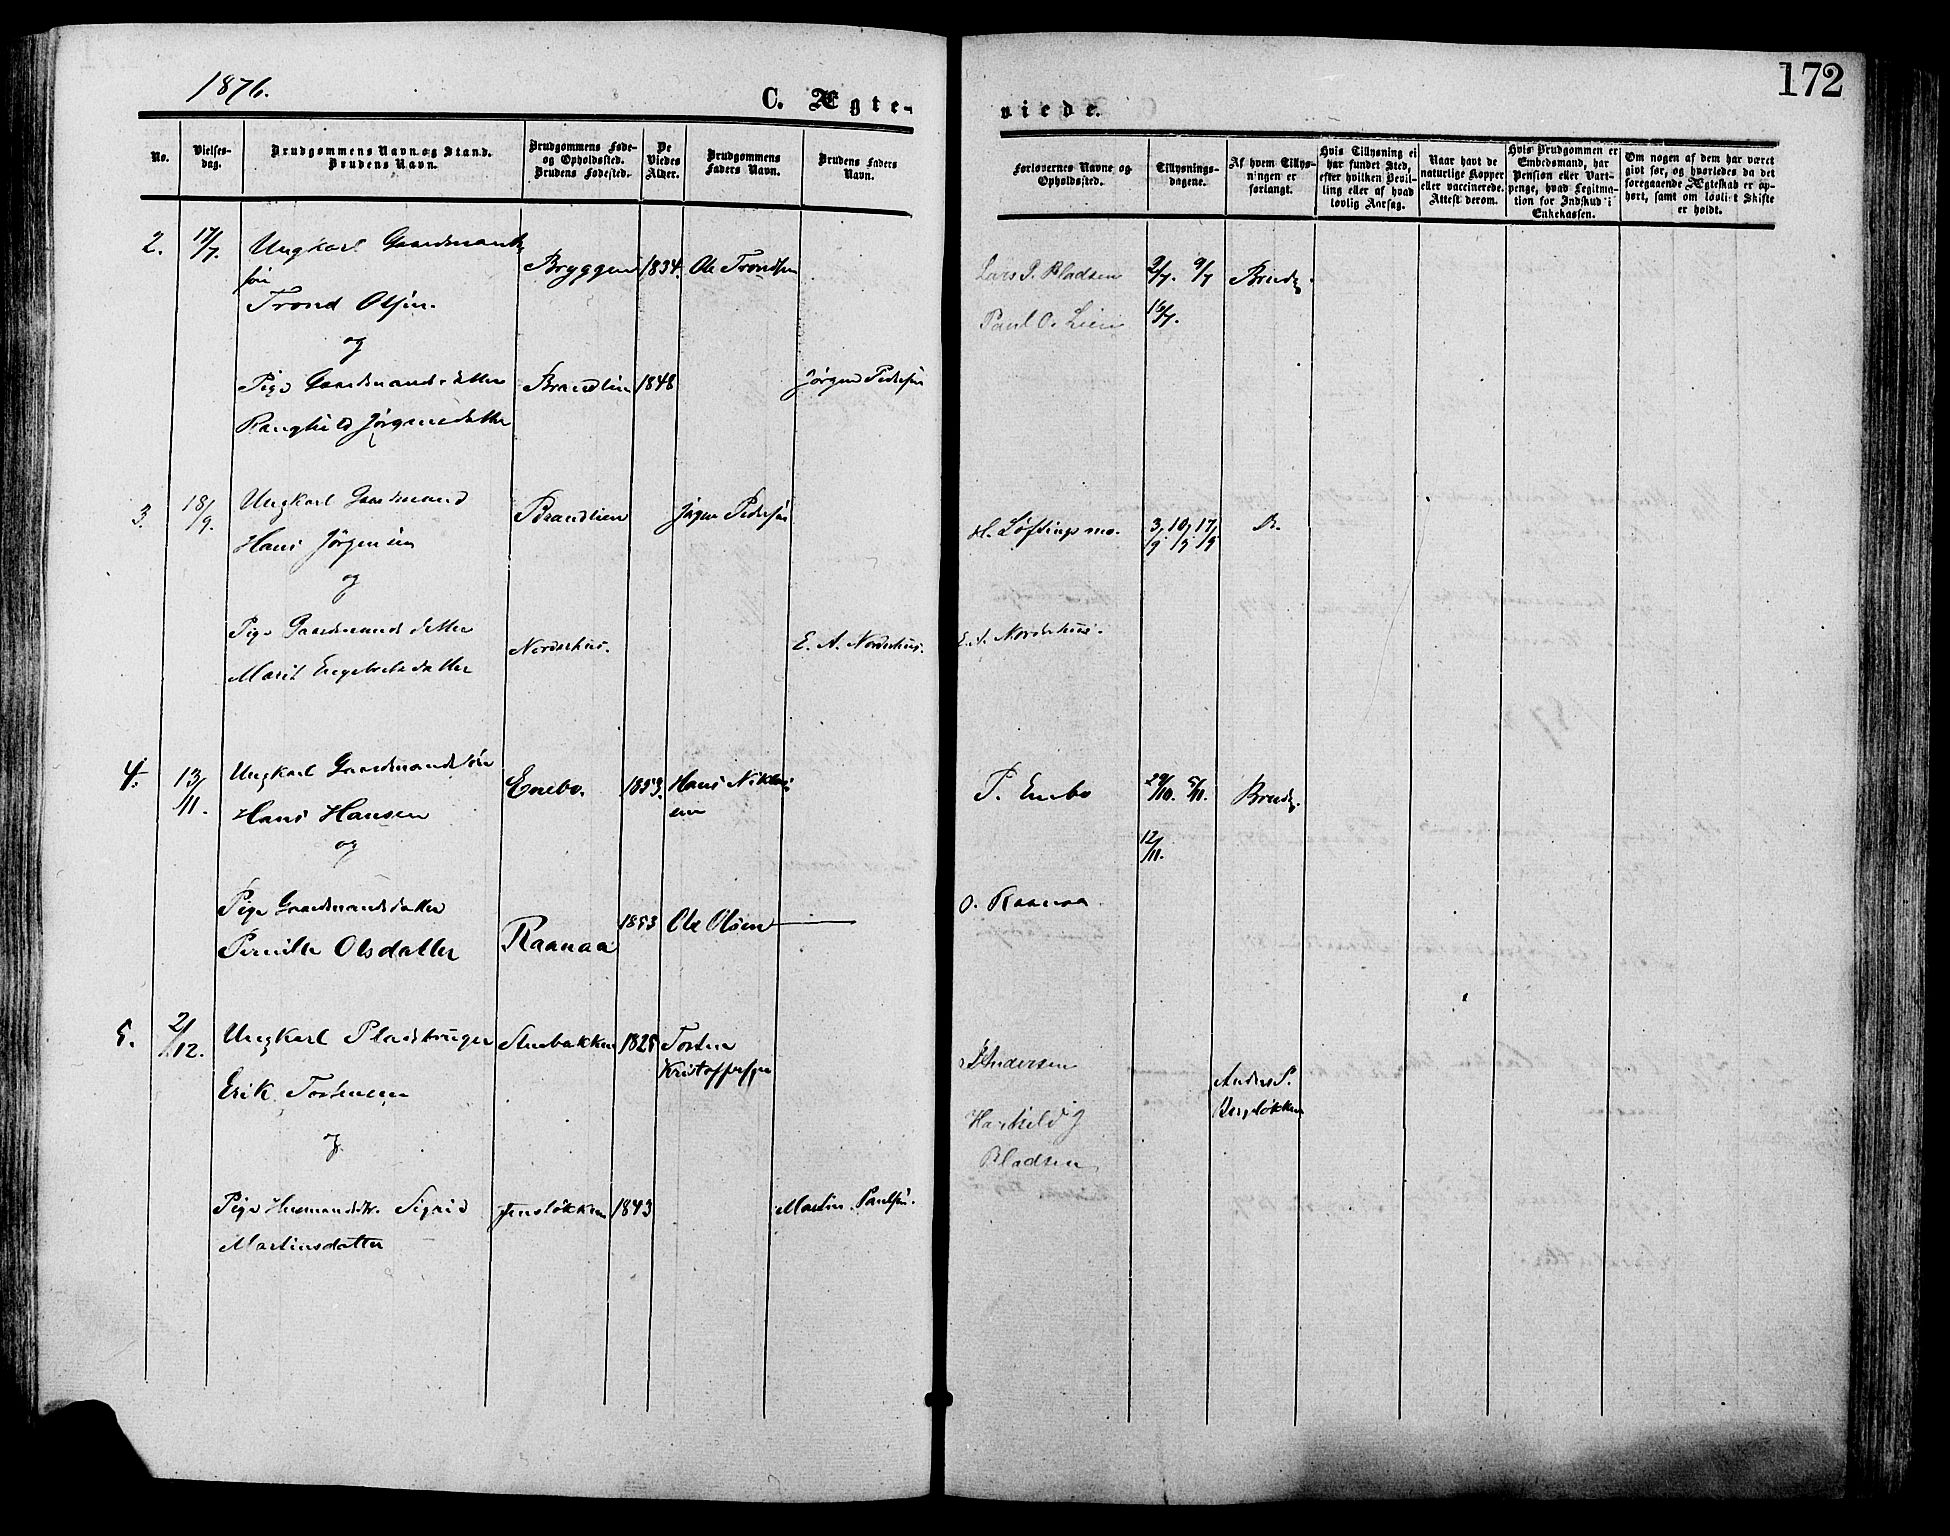 1876.
C. Ægte-
viede.
172
No.
Vielses-
dag.
Brudgommens Navn og Stand.
Brudens Navn.
Brudgommens Føde-
og Opholdssted.
Brudens Fødested.
De
Viedes
Alder.
Brudgommens
Faders Navn.
Brudens Faders
Navn.
Forlovernes Navne og
Opholdssted.
Tillysnings-
dagene.
Af hvem Tillys-
ningen er
forlangt.
Hvis Tillysning ei
har fundet Sted,
efter hvilken Bevil-
ling eller af hvad
lovlig Aarsag.
Naar havt de
naturlige Kopper
eller vaccinerede.
Attest derom.
Hvis Brudgommen er
Embedsmand, har
Pension eller Vart-
penge, hvad Legitima-
tion for Indskud i
Enkekassen.
Om nogen af dem har været
givt før, og hvorledes da det
foregaaende Ægteskab er op-
hørt, samt om lovligt Skifte
er holdt.
2. 17/7. Ungkarl Gaardmands
søn
Bryggen 1834. Ole Trondsen
Lars P. Bladsen 2/7. 9/7 Brudg.
Trond Olsen.
Paul O. Lien 16/7.
og
Pige Gaardmandsdatter Brandlien 1848 Jørgen Pedersen
Ranghild Jørgensdatter
3. 18/9. Ungkarl Gaardmand Brandlien Jørgen Pedersen
Hans Jørgensen
H. Løftingsmo. 3/9 10/9 17/9 B.
og
Pige Gaardmandsdatter Norderhus. E. A. Norderhus. E. A. Norderhus.
Marit Engebretsdatter
4. 13/11. Ungkarl Gaardmandssøn Enebo. 1853. Hans Niklai-
sen
P. Enebo 29/10. 5/11. Brudg.
Hans Hansen
12/11.
og
Pige Gaardmandsdatter 1853 Ole Olsen
O. Raanaa.
Pernille Olsdatter Raanaa
5. 2/12. Ungkarl Pladsbruger Stubakken 1825 Torsten
Kristoffersen
Andersen
Erik Torstensen
Anders P.
Bergløkken
og
Bladsen
Pige Husmandsdtr. Sigrid Jensløkken 1843 Martin Paulsen.
Martinsdatter